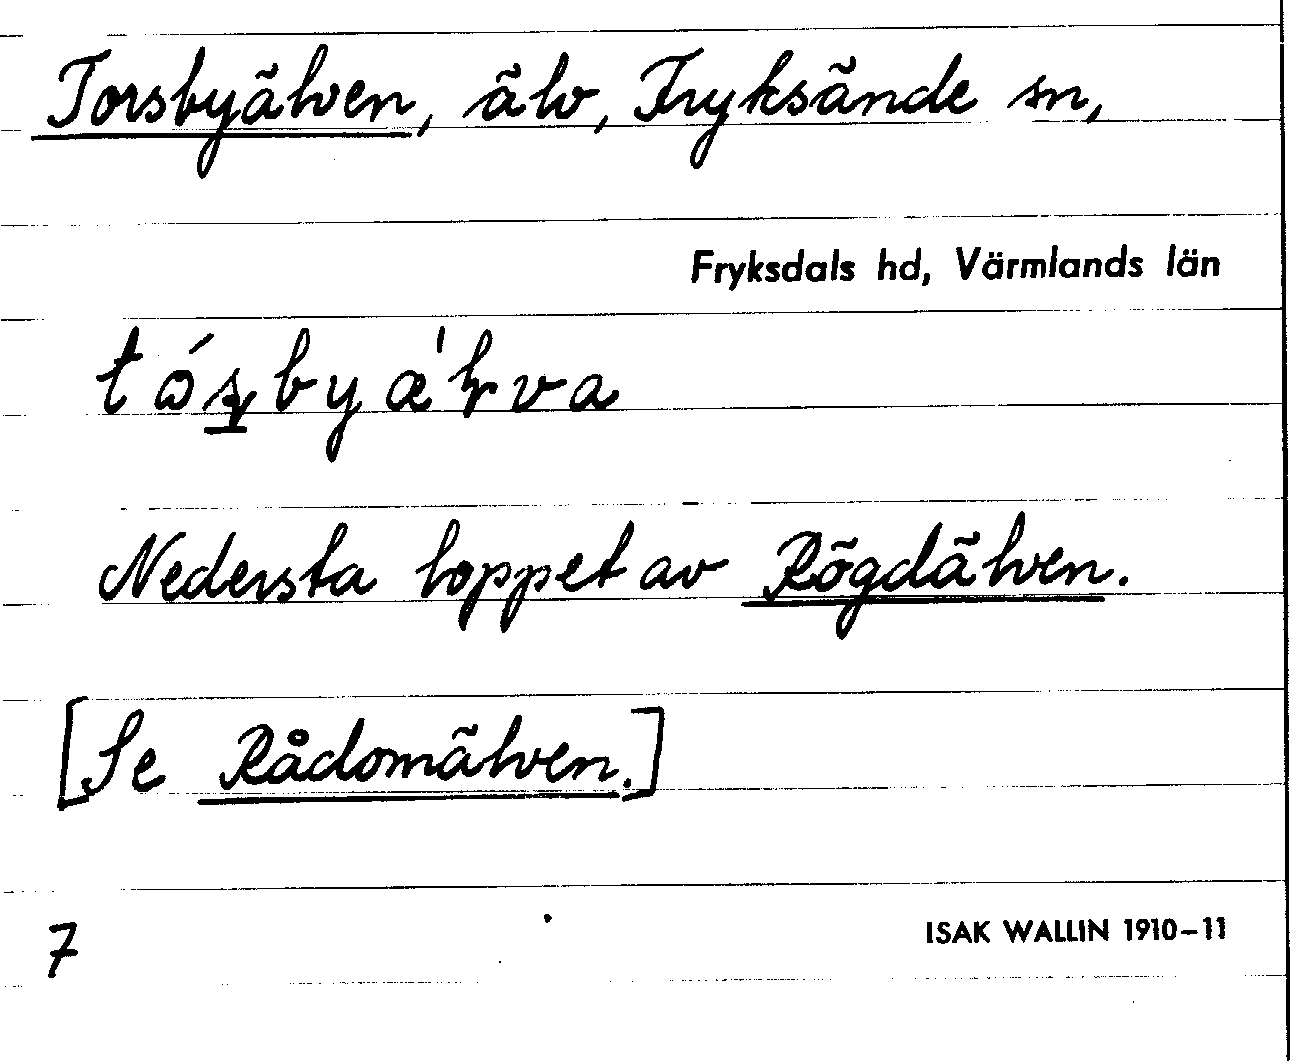 Torsbyälven, älv, Fryksände sn,
Fryksdals hd, Värmlands län
Nedersta loppet av Rögdälven.
[Se Rådomälven.]
7
ISAK WALLIN 1910-11